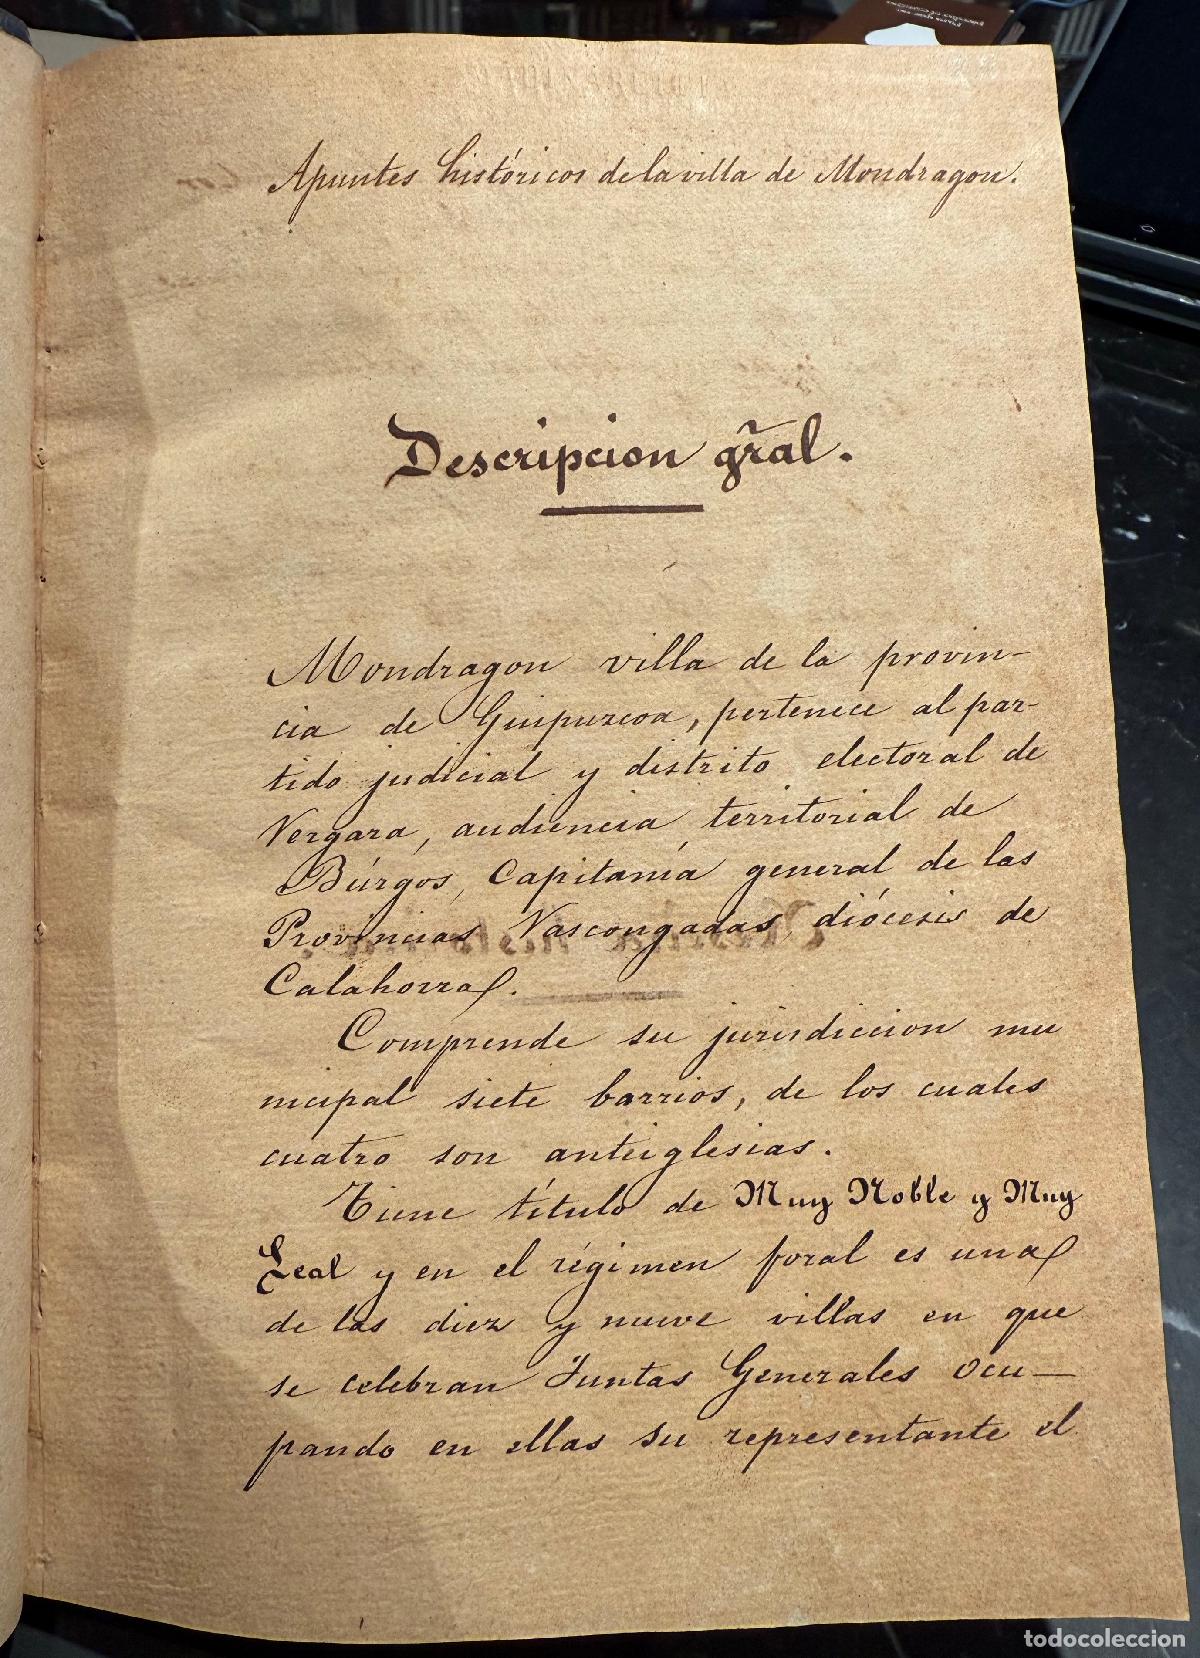 Apuntes históricos de la villa de Mondragon.
Descripcion gr̃al.
Mondragon villa de la provin-
cia de Guipuzcoa, pertenece al par-
tido judicial y distrito electoral de
Vergara, audiencia territorial de
Búrgos, Capitanía general de las
Provincias Vascongadas, diócesis de
Calahorra.
Comprende su jurisdiccion mu
nicipal siete barrios, de los cuales
cuatro son anteiglesias.
Tiene título de Muy Noble y Muy
Leal y en el régimen foral es una
de las diez y nueve villas en que
se celebran Juntas Generales ocu-
pando en ellas su representante el
todocoleccion